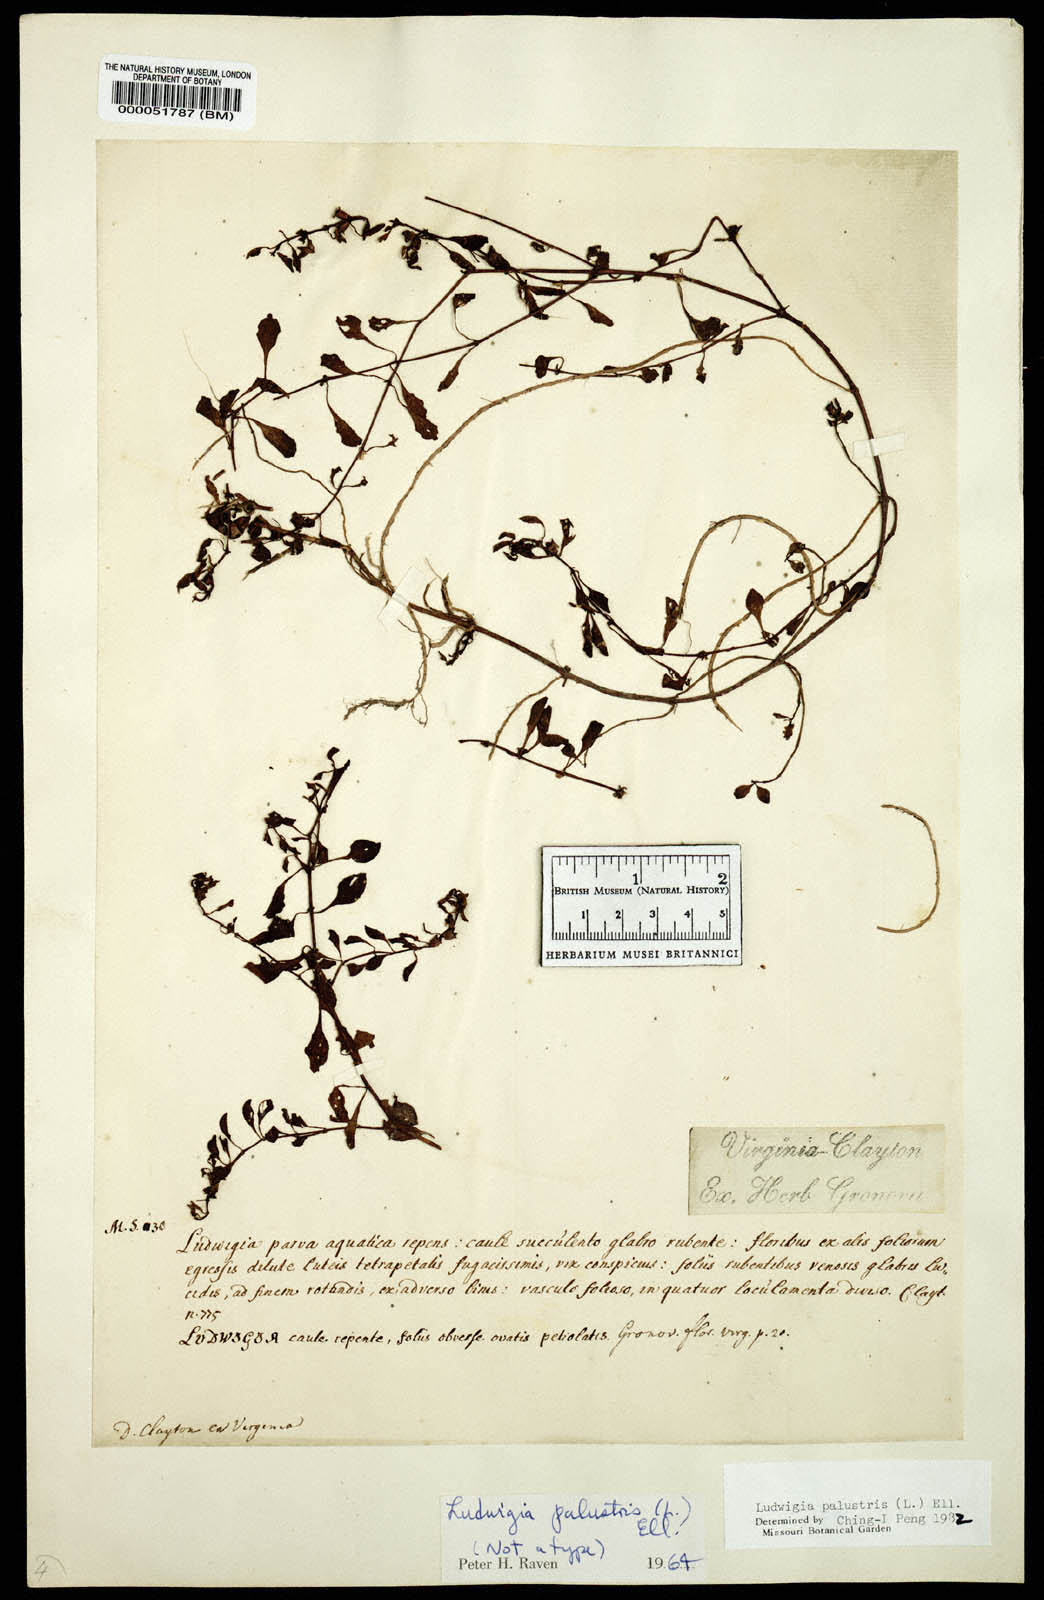 THE NATURAL HISTORY MUSEUM, LONDON
DEPARTMENT OF BOTANY
000051787 (BM)
1 2
BRITISH MUSEUM (NATURAL HISTORY)
1 2 3 4 5
HERBARIUM MUSEI BRITANNICI
Virginia Clayton
Ex. Herb Gronovii
M.S. 30
Ludwigia parva aquatica repens: caule succulento glabro rubente: floribus ex alis foliorum
egressis dilute luteis tetrapetalis fugacissimis, vix conspicuis: foliis rubentibus venosis glabris lu-
cidis, ad finem rotundis, ex adverso binis: vasculo folioso, in quatuor loculamenta diviso. Clayt.
n. 775
LUDWIGIA caule repente, foliis obverse ovatis petiolatis. Gronov. flor. virg. p. 20.
D. Clayton ex Virginia
Ludwigia palustris (L.)
Ell.
(Not a type)
Peter H. Raven 1964
Ludwigia palustris (L.) Ell.
Determined by Ching-I Peng 1982
Missouri Botanical Garden
4